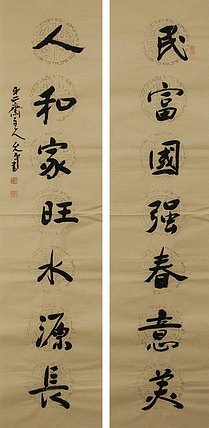 民富國强春意美
人和家旺水源長